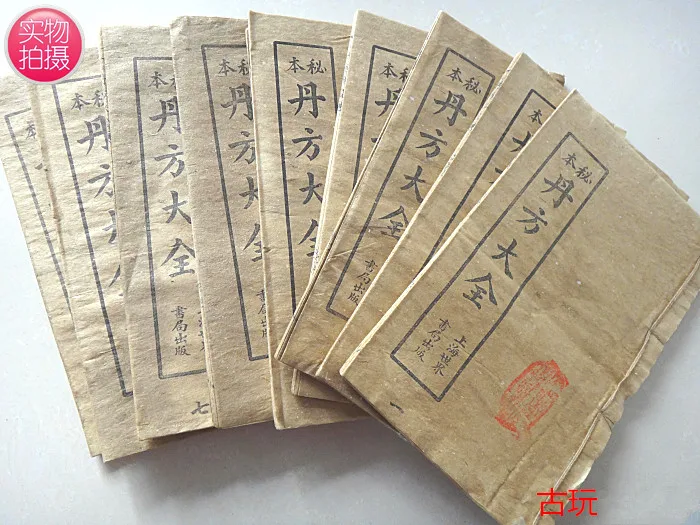 实物
拍摄
本
秘本
丹方
本
丹方大全
書局出版
七
本
丹方大全
書局出版
本
丹方大全
秘本
丹
秘本
丹方大全
書局出版
秘本
一
秘本
丹方大全
上海世界
書局出版
古玩